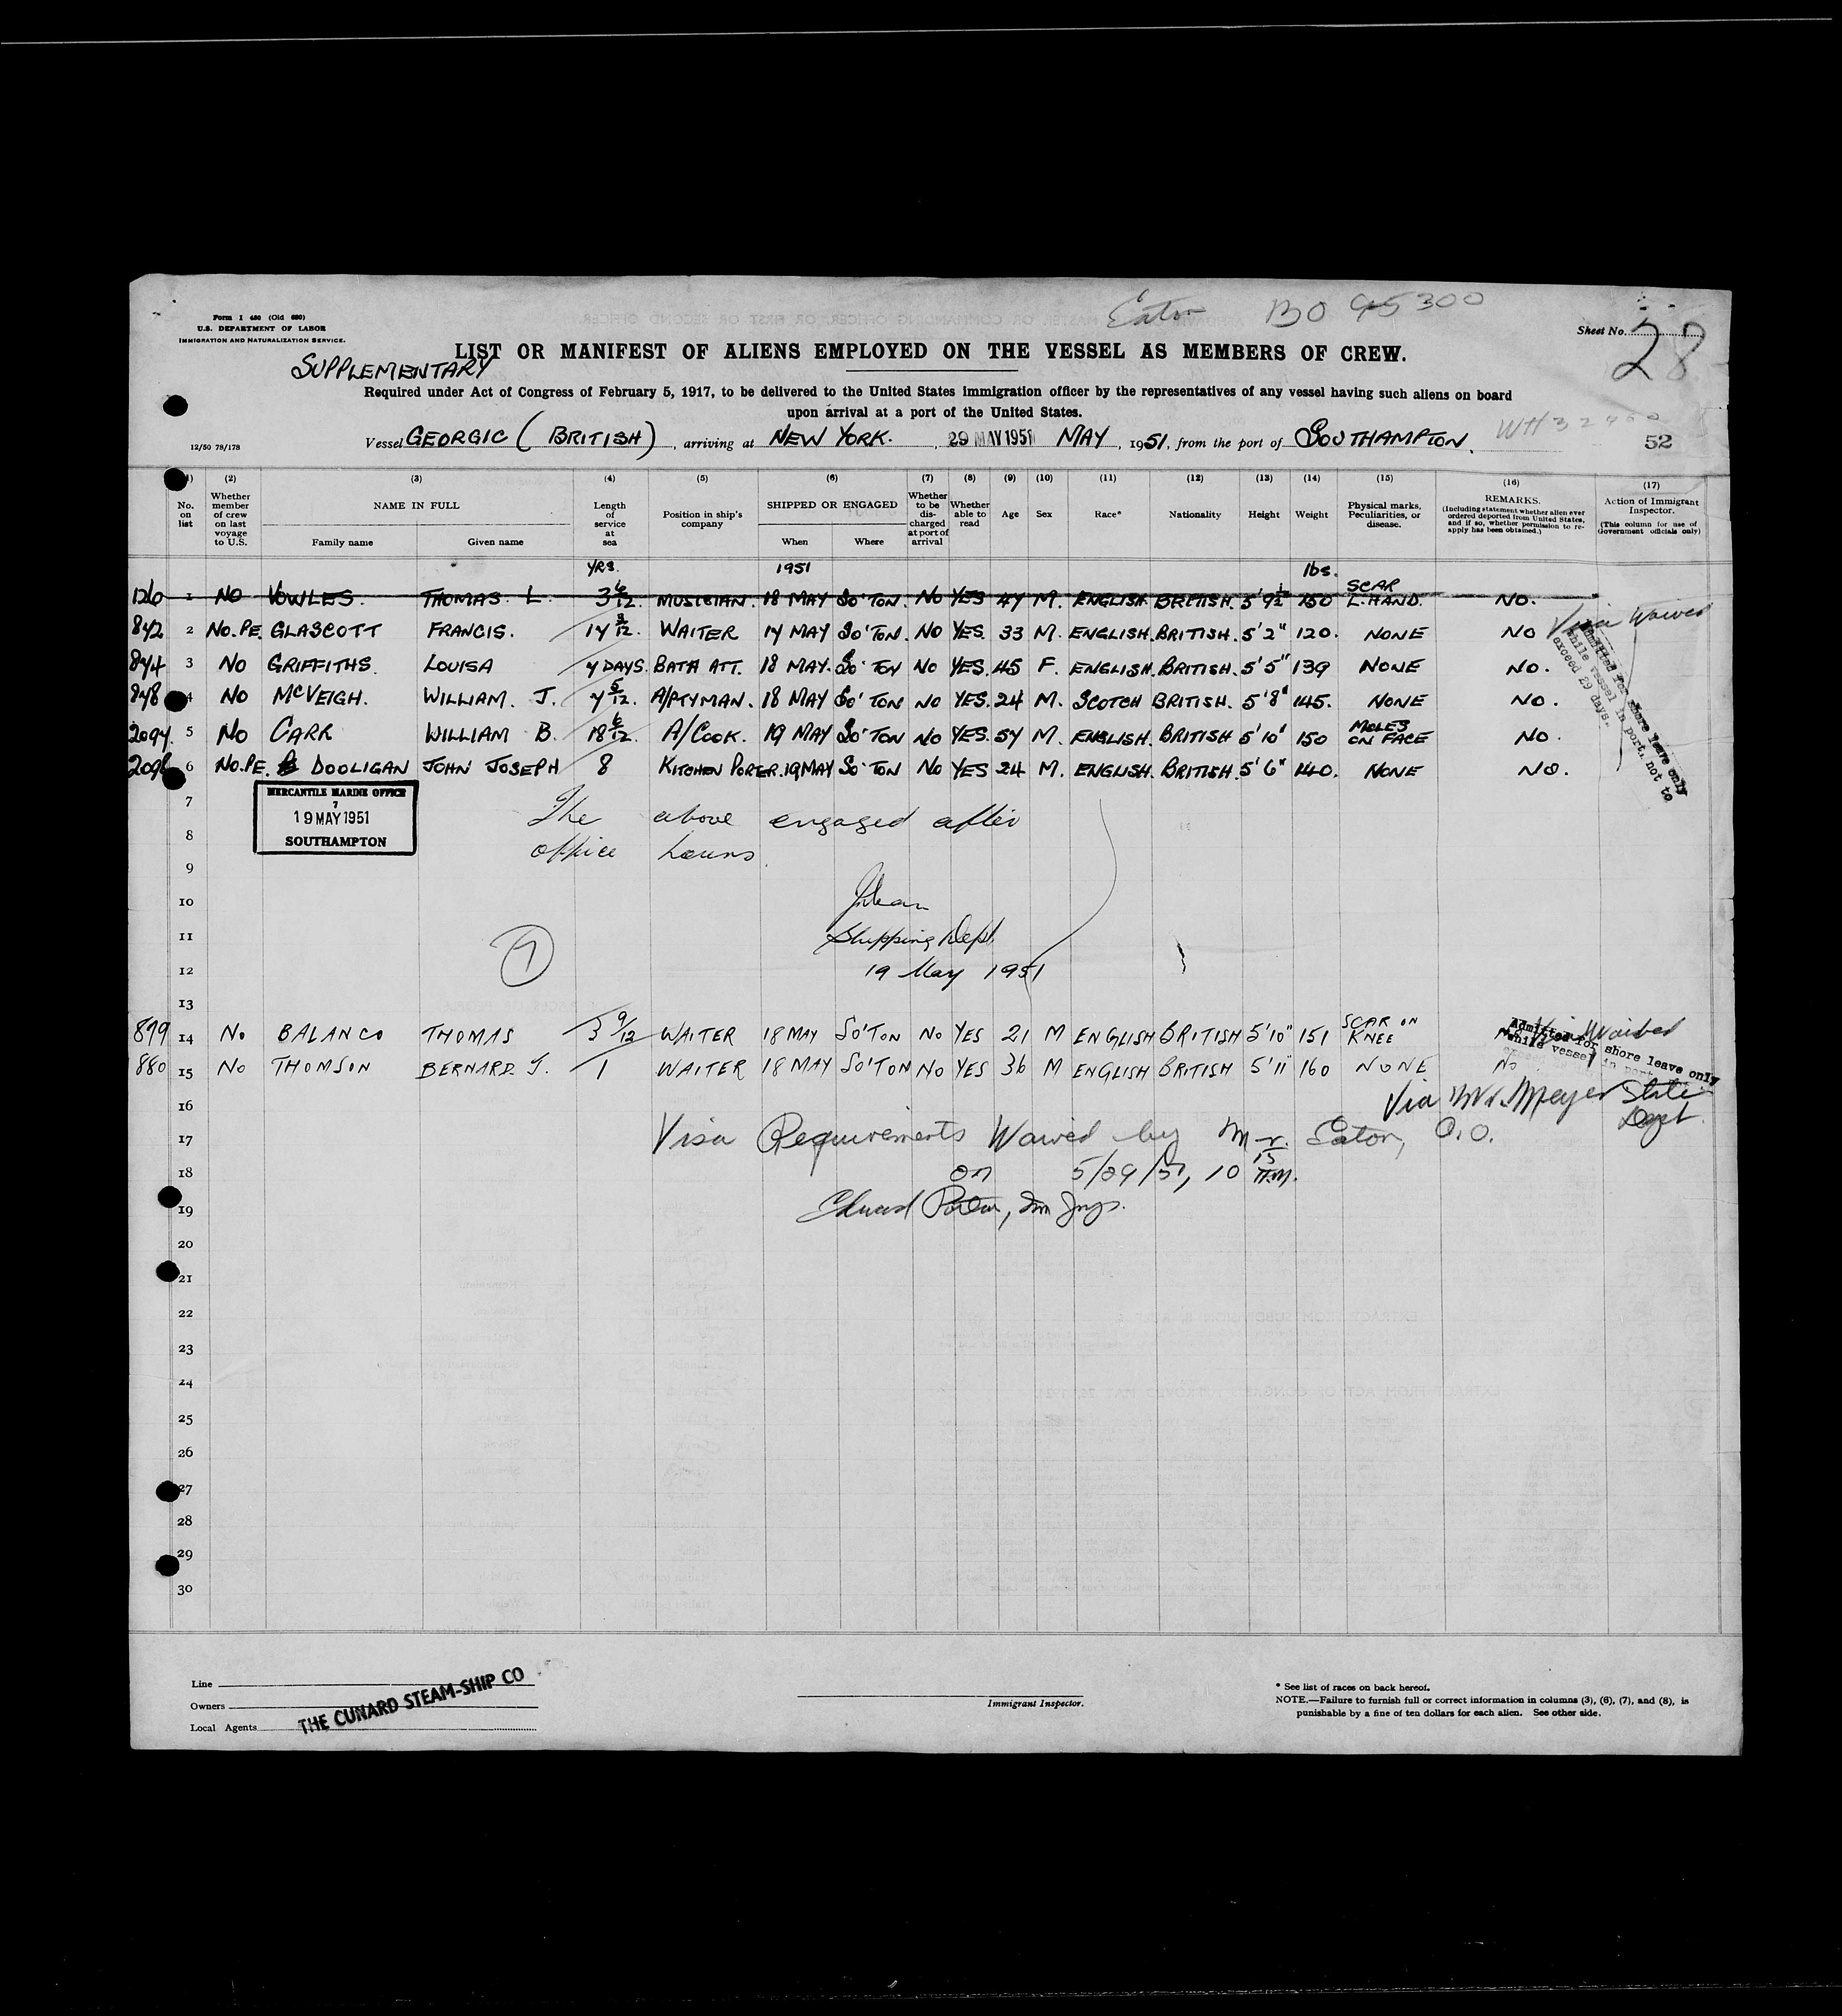 Eaton BO 95300
Form I 480 (Old 680)
U.S. DEPARTMENT OF LABOR
IMMIGRATION AND NATURALIZATION SERVICE.
Sheet No. 28
LIST OR MANIFEST OF ALIENS EMPLOYED ON THE VESSEL AS MEMBERS OF CREW.
SUPPLEMENTARY
Required under Act of Congress of February 5, 1917, to be delivered to the United States immigration officer by the representatives of any vessel having such aliens on board
upon arrival at a port of the United States.
12/50 78/178
Vessel GEORGIC (BRITISH), arriving at NEW YORK. , 29 MAY 1951 MAY, 1951, from the port of SOUTHAMPTON.
52
(1) (2) (3) (4) (5) (6) (7) (8) (9) (10) (11) (12) (13) (14) (15) (16) (17)
No. on list
Whether member of crew on last voyage to U.S.
NAME IN FULL
Family name Given name
Length of service at sea
Position in ship's company
SHIPPED OR ENGAGED
When Where
Whether to be discharged at port of arrival
Whether able to read
Age
Sex
Race*
Nationality
Height
Weight
Physical marks, Peculiarities, or disease.
REMARKS.
(Including statement whether alien ever ordered deported from United States, and if so, whether permission to reapply has been obtained.)
Action of Immigrant Inspector.
(This column for use of Government officials only)
YRS. 1951 lbs.
126 1 NO VOWLES. THOMAS. L. 3 6/12. MUSICIAN. 18 MAY SO'TON. NO YES 47 M. ENGLISH. BRITISH. 5'9½ 150 SCAR L.HAND. NO.
842 2 NO.PE. GLASCOTT FRANCIS. 17 3/12. WAITER 17 MAY SO'TON. NO YES. 33 M. ENGLISH. BRITISH. 5'2" 120. NONE NO Visa Waived
874 3 NO GRIFFITHS. LOUISA 7 DAYS. BATH ATT. 18 MAY. SO'TON NO YES. 45 F. ENGLISH. BRITISH. 5'5" 139 NONE NO.
848 4 NO McVEIGH. WILLIAM. J. 7 5/12. A/PTYMAN. 18 MAY SO'TON NO YES. 24 M. SCOTCH BRITISH. 5'8" 145. NONE NO.
2097. 5 NO CARR WILLIAM B. 18 6/12. A/COOK. 19 MAY SO'TON NO YES. 57 M. ENGLISH. BRITISH 5'10" 150 MOLES ON FACE NO.
2098 6 NO.PE. DOOLIGAN JOHN JOSEPH 8 KITCHEN PORTER. 19 MAY SO'TON NO YES 24 M. ENGLISH. BRITISH. 5'6" 140. NONE NO.
Admitted for shore leave only
while vessel in port, not to
exceed 29 days.
7
MERCANTILE MARINE OFFICE
7
19 MAY 1951
SOUTHAMPTON
The above engaged after
8
office hours.
9
10
11 Shipping Dept
7
12 19 May 1951
13
879 14 NO BALANCO THOMAS 3 9/12 WAITER 18 MAY SO'TON NO YES 21 M ENGLISH BRITISH 5'10" 151 SCAR ON KNEE No Visa Waived
880 15 NO THOMSON BERNARD. J. 1 WAITER 18 MAY SO'TON NO YES 36 M ENGLISH BRITISH 5'11 160 NONE No
Admitted for shore leave only
while vessel in port
16 Via Mr. Meyer State Dept.
17 Visa Requirements Waived by Mr. Eaton, O.O.
18 on 5/29/51, 10 15 A.M.
19 Imm Insp.
20
21
22
23
24
25
26
27
28
29
30
Line
Owners
Local Agents
THE CUNARD STEAM-SHIP CO
Immigrant Inspector.
* See list of races on back hereof.
NOTE.—Failure to furnish full or correct information in columns (3), (6), (7), and (8), is
punishable by a fine of ten dollars for each alien. See other side.